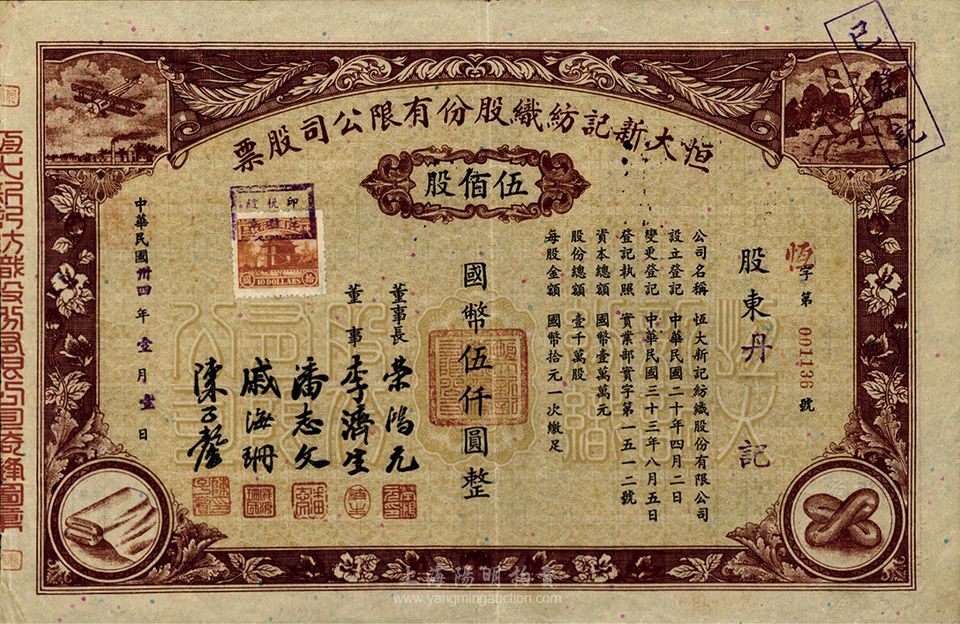 恒大新記紡織股份有限公司股票
伍佰股
恆字第 001136 號
股東 丹 記
公司名稱 恆大新記紡織股份有限公司
設立登記 中華民國二十年四月二日
變更登記 中華民國三十三年八月五日
登記執照 實業部實字第一五一二號
資本總額 國幣壹萬萬元
股份總額 壹千萬股
每股金額 國幣拾元一次繳足
國幣伍仟圓整
董事長 榮鴻元
董事 李濟生
潘志文
戚海珊
陳子馨
中華民國卅四年壹月壹日
拾
圓
10 DOLLARS
已登記
上海陽明拍賣
www.yangmingauction.com